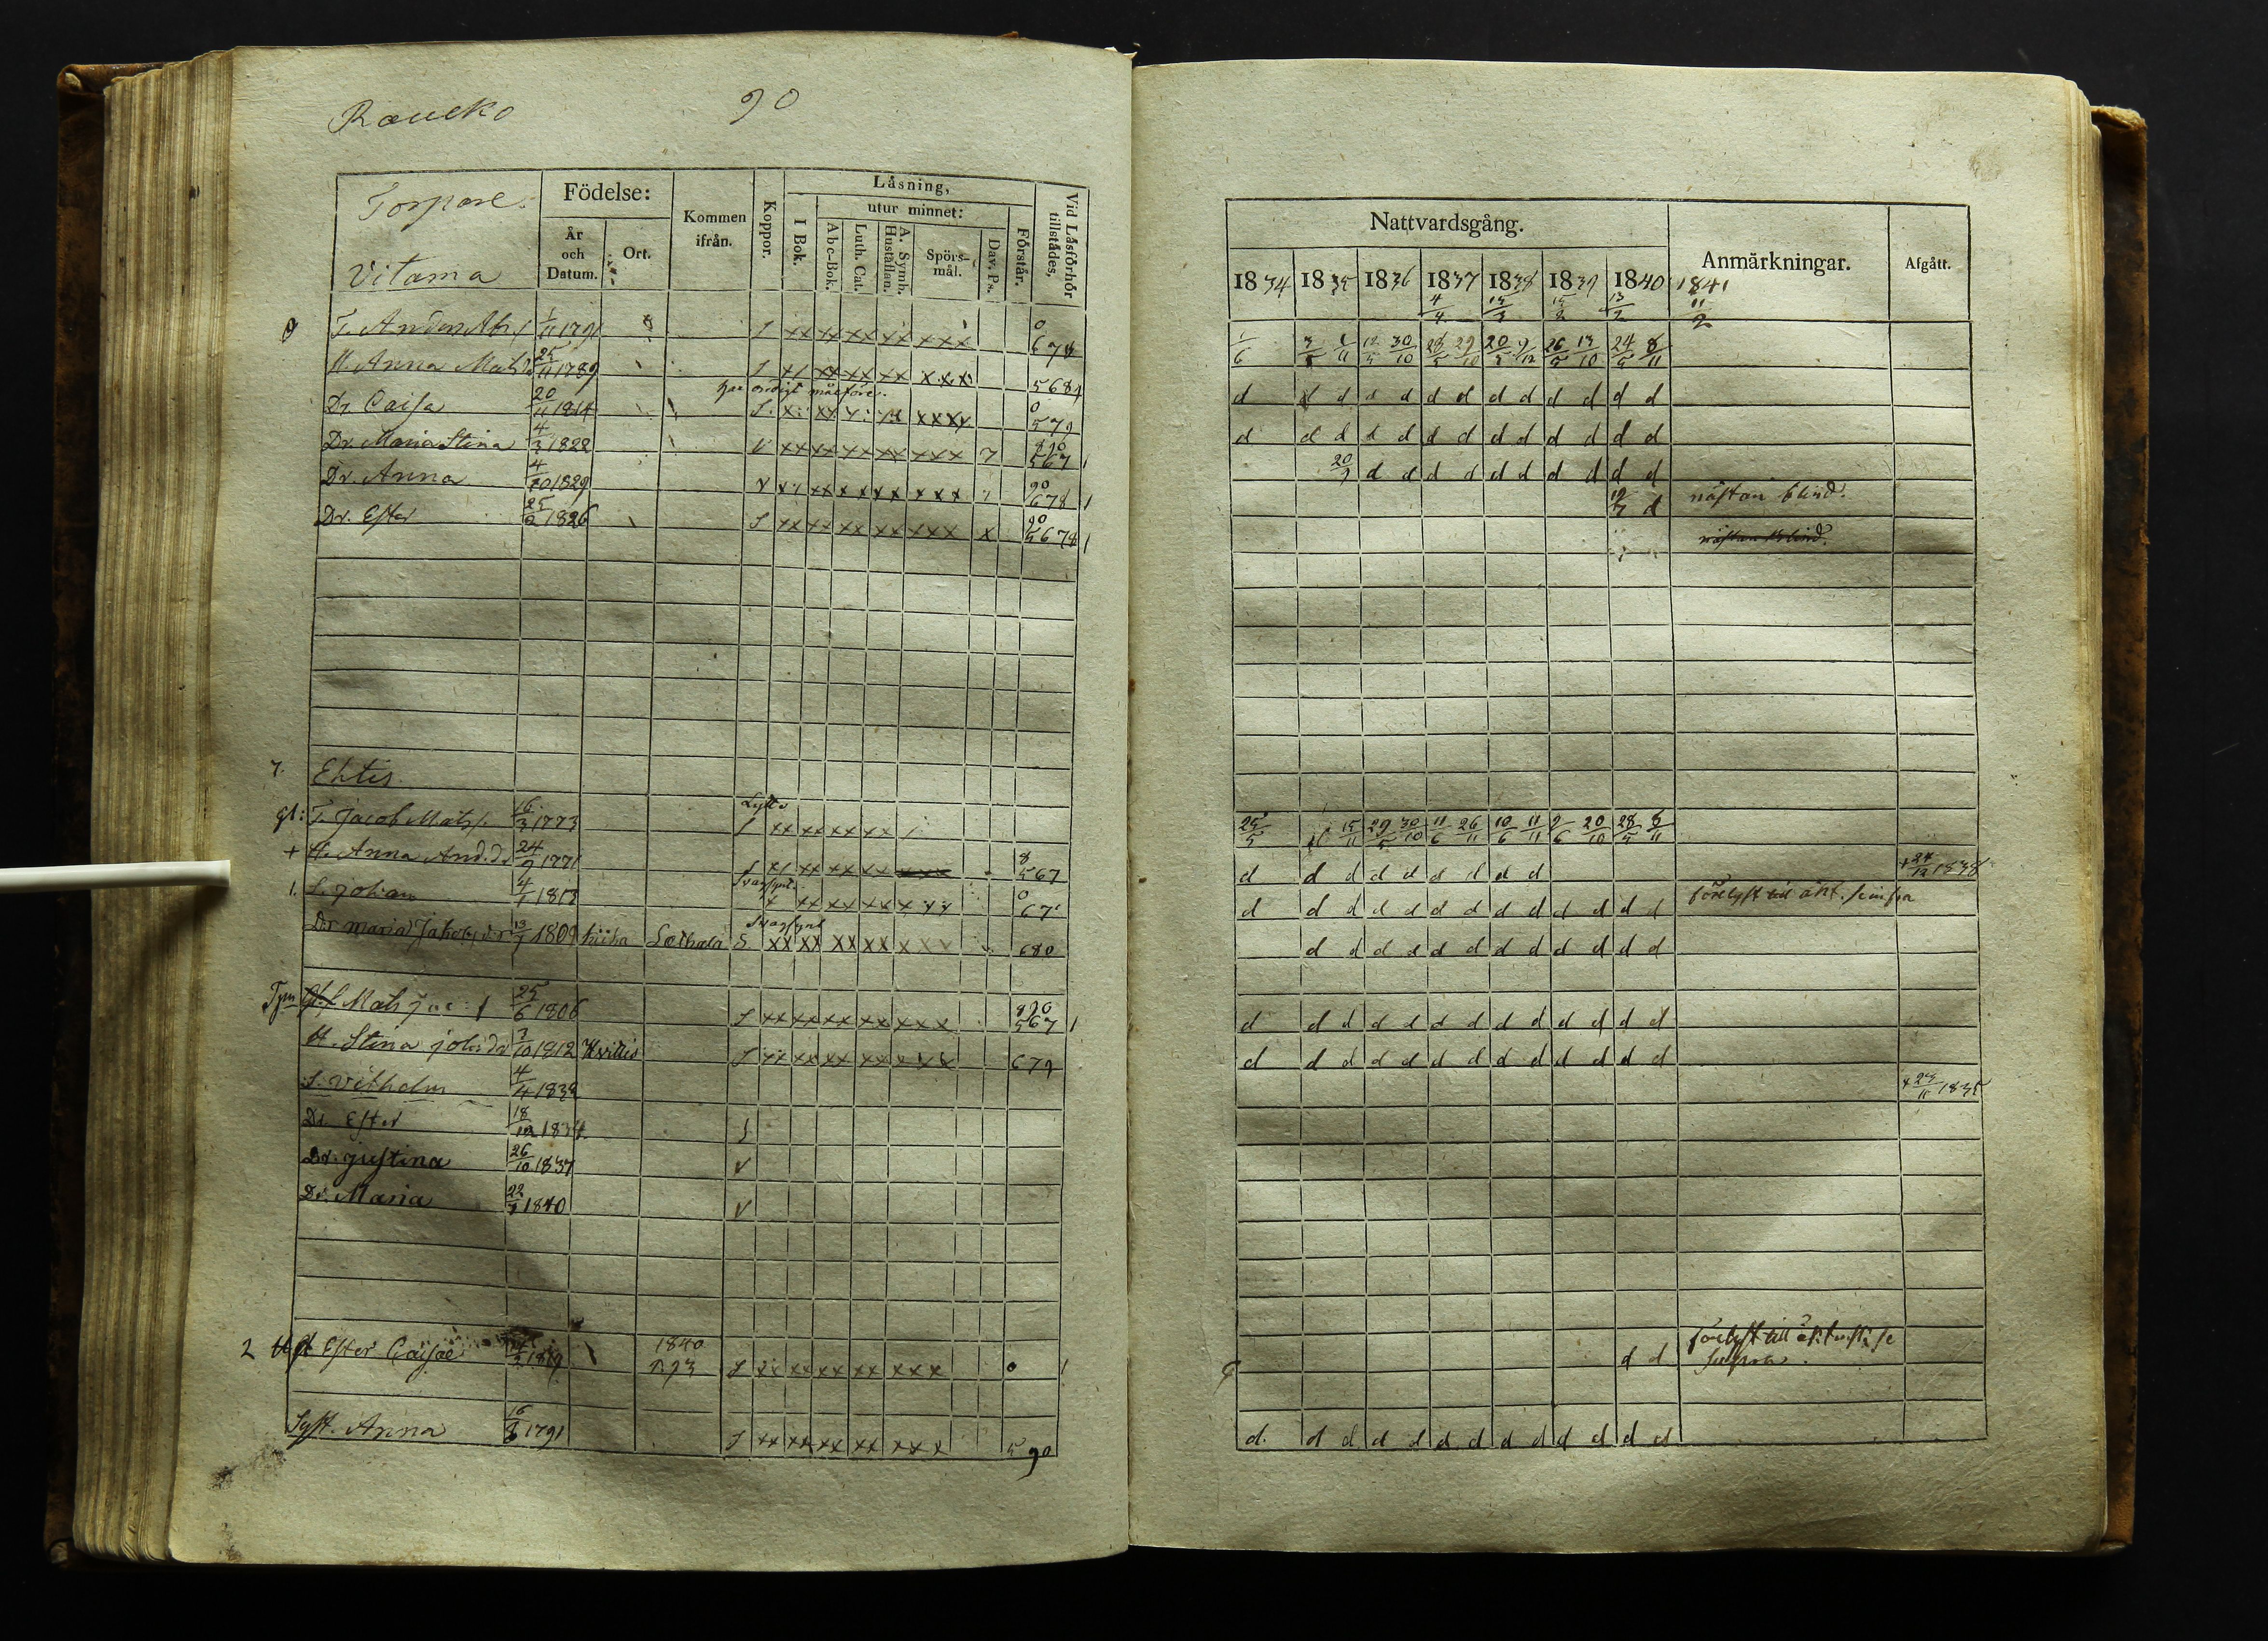 Raucko 90
Torpare.
Vitama
Födelse:
År och Datum.
Ort.
Kommen ifrån.
Koppor.
Läsning,
I Bok.
utur minnet:
Abc-Bok.
Luth. Cat.
A. Symb. Hustaflan.
Spörs-mål.
Dav. Ps.
Förstår.
Vid Läsförhör tillstädes,
T. Anders 1/11 1791 xx xx xx xx xxx 0 678
H. Anna Mats dr 25/11 1789 xx xx xx xx xxx 5689
Dr. Caisa 20/11 1814 xx xxxx 0 579
Dr. Maria Stina 4/3 1822 v xx xx xx xx xxx 7 890 567 1
Dr. Anna 4/10 1829 v xx xx xx xx xxx 90 678 1
Dr. Ester 25/2 1826 xx xx xx xx xxx x 90 5678 1
7. Ehtis
gl: T. Jacob Mats f. 16/3 1773 Lytt xx xx xx xx
+ H. Anna And.dr 24/2 1771 xx xx xx xxx 8 567
1. S. Johan 4/1 1813 Svagsynt x xx xx xx xxx 0 67
Dr maria Jakobs dr 13/7 1809 Svagsynt S xx xx xx xx xxx 680
Mats Jac: f 25/6 1806 xx xx xx xx xxx 890 567 1
H. Stina joh: dr 7/10 1812 Kvillis xx xx xx xx xxx 679
S. Vilhelm 4/4 1832
Dr. Ester 18/12 1834
Dr. Justina 26/10 1837 v
Dr. Maria 22/7 1840 v
2 Ester Caisae 1819 1840 p. 93 xx xx xx xx xxx 0 1
Syst. Anna 16/8 1791 xx xx xx xx xxx 5 90
Nattvardsgång.
Anmärkningar.
Afgått.
1834 1835 1836 1837 1838 1839 1840 1841
4/4 13/2 11/2
1/6 12/5 30/10 28/5 29/10 20/5 9/12 26/5 13/10 24/5 8/11
d d d d d d d d d d d d d
d d d d d d d d d d d d d
20/9 d d d d d d d d d d
d nästan blind.
nästan blind.
25/5 15/11 29/5 30/10 11/6 26/11 10/6 11/11 2/6 20/10 28/5 8/11
d d d d d d d d d + 24/12 1838
d d d d d d d d d d d d d förelyst till äkt.
d d d d d d d d d d d d
d d d d d d d d d d d d d
d d d d d d d d d d d d d
+ 23/11 1835
d d förelyst till
supra.
d. d d d d d d d d d d d d